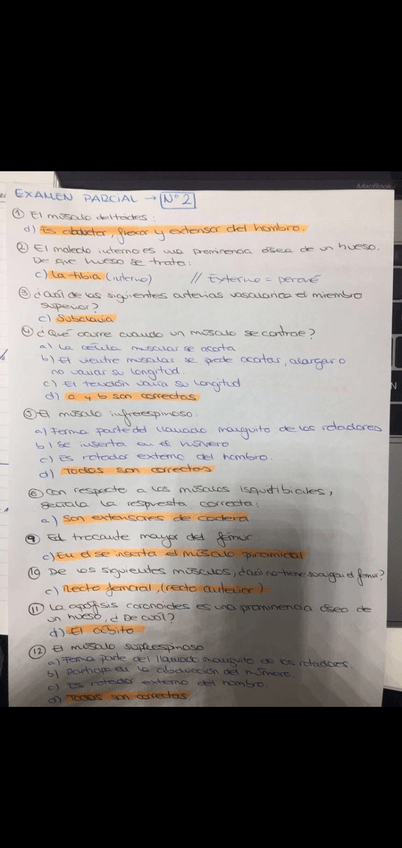 MacBook
EXAMEN PARCIAL → Nº 2
① El músculo deltoides:
d) Es abductor, flexor y extensor del hombro.
② El maleolo interno es una prominencia ósea de un hueso.
De que hueso se trata:
c) La tibia (interno) // Externo = peroné
③ ¿Cuál de las siguientes arterias vasculariza el miembro
superior?
c) Subclavia
④ ¿Qué ocurre cuando un músculo se contrae?
a) La célula muscular se acorta
b) El vientre muscular se puede acortar, alargar o
no variar su longitud.
c) El tendón varía su longitud
d) a y b son correctas
⑤ El músculo infraespinoso:
a) Forma parte del llamado manguito de los rotadores
b) Se inserta en el húmero
c) Es rotador externo del hombro.
d) Todas son correctas
⑥ Con respecto a los músculos isquiotibiales,
señala la respuesta correcta:
a) Son extensores de cadera
⑨ El trocanter mayor del fémur
c) En él se inserta el músculo piramidal
⑩ De los siguientes músculos, ¿cuál no tiene su origen el fémur?
c) Recto femoral, (recto anterior)
⑪ La apófisis coronoides es una prominencia ósea de
un hueso, ¿De cuál?
d) El cúbito
⑫ El músculo supraespinoso
a) Forma parte del llamado manguito de los rotadores
b) Participa en la abducción del húmero
c) Es rotador externo del hombro.
d) Todas son correctas.